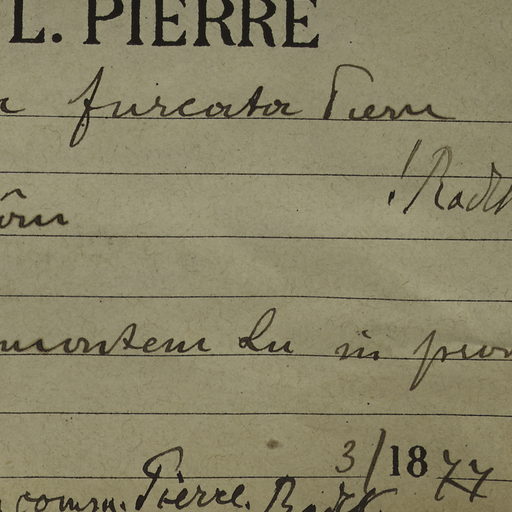 L. PIERRE
furcata Pierre
! Radlk
montem Lu in prov
3/1877
comm. Pierre. Radlk